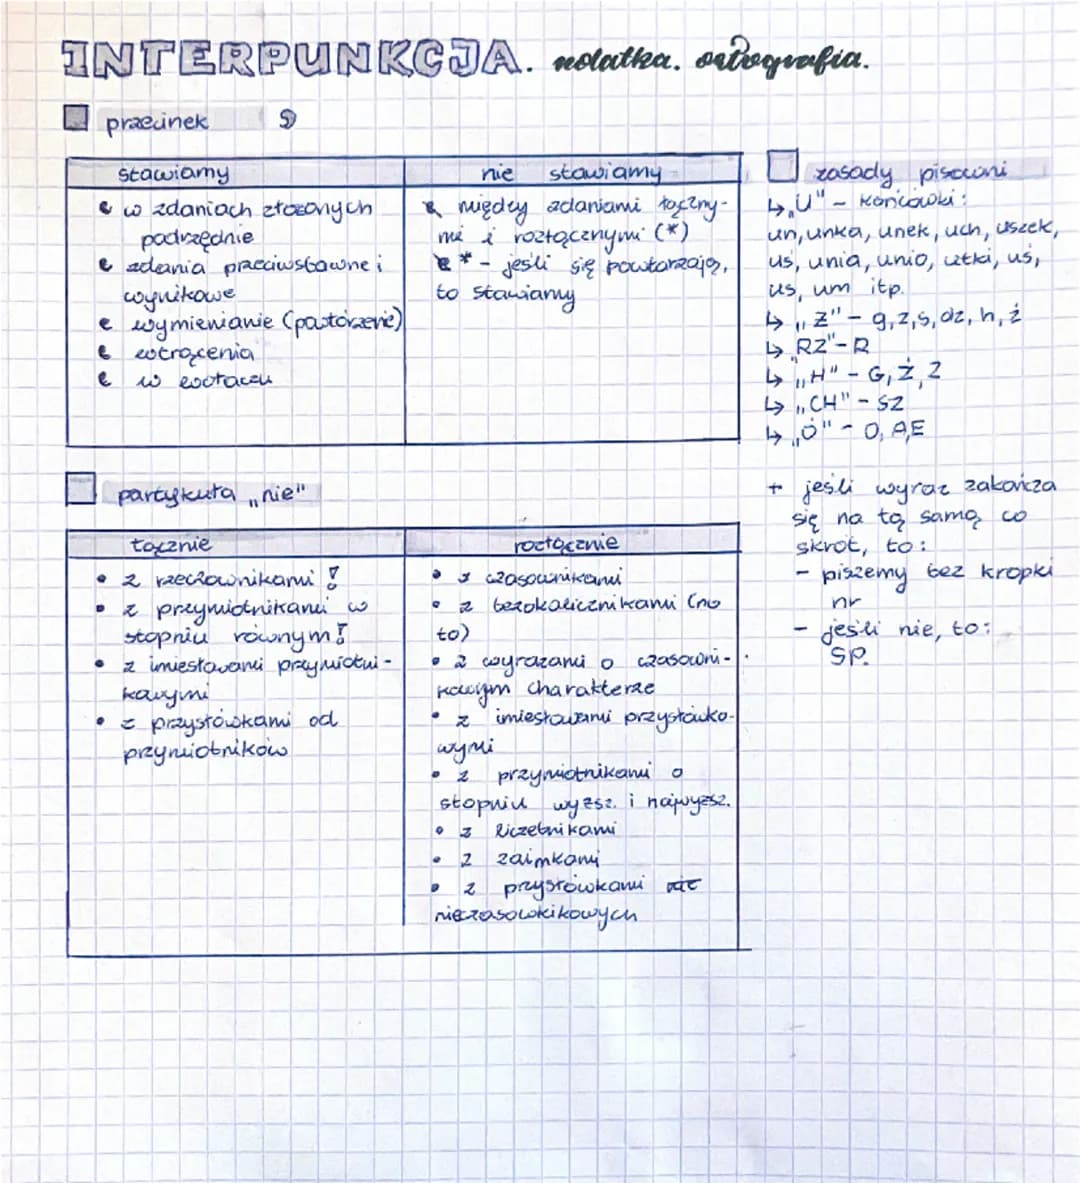 INTERPUNKCJA. notatka. ortografia.
przecinek
stawiamy
w zdaniach złożonych
podrzędnie
zdania przeciwstawne i
wynikowe
wymienianie (powtórzenie)
wtrącenia
w wołaczu
nie stawiamy
między zdaniami łączny-
mi i rozłącznymi (*)
* - jeśli się powtarzają,
to stawiamy
zasady pisowni
↳ „U" - końcówki:
un, unka, unek, uch, uszek,
us, unia, unio, utki, uś,
us, um itp.
↳ „Ż" - g, z, s, dz, h, ź
↳ „RZ" - R
↳ „H" - G, Ż, Z
↳ „CH" - SZ
↳ „Ó" - O, A, E
+ jeśli wyraz zakończa
się na tą samą co
skrót, to:
- piszemy bez kropki
nr
- jeśli nie, to:
SP.
partykuła „nie"
łącznie
• z rzeczownikami !
• z przymiotnikami w
stopniu równym !
• z imiesłowami przymiotni-
kowymi
• z przysłówkami od
przymiotników
rozłącznie
• z czasownikami
• z bezokolicznikami (no
to)
• z wyrazami o czasowni-
kowym charakterze
• z imiesłowami przysłówko-
wymi
• z przymiotnikami o
stopniu wyższ. i najwyższ.
• z liczebnikami
• z zaimkami
• z przysłówkami nie